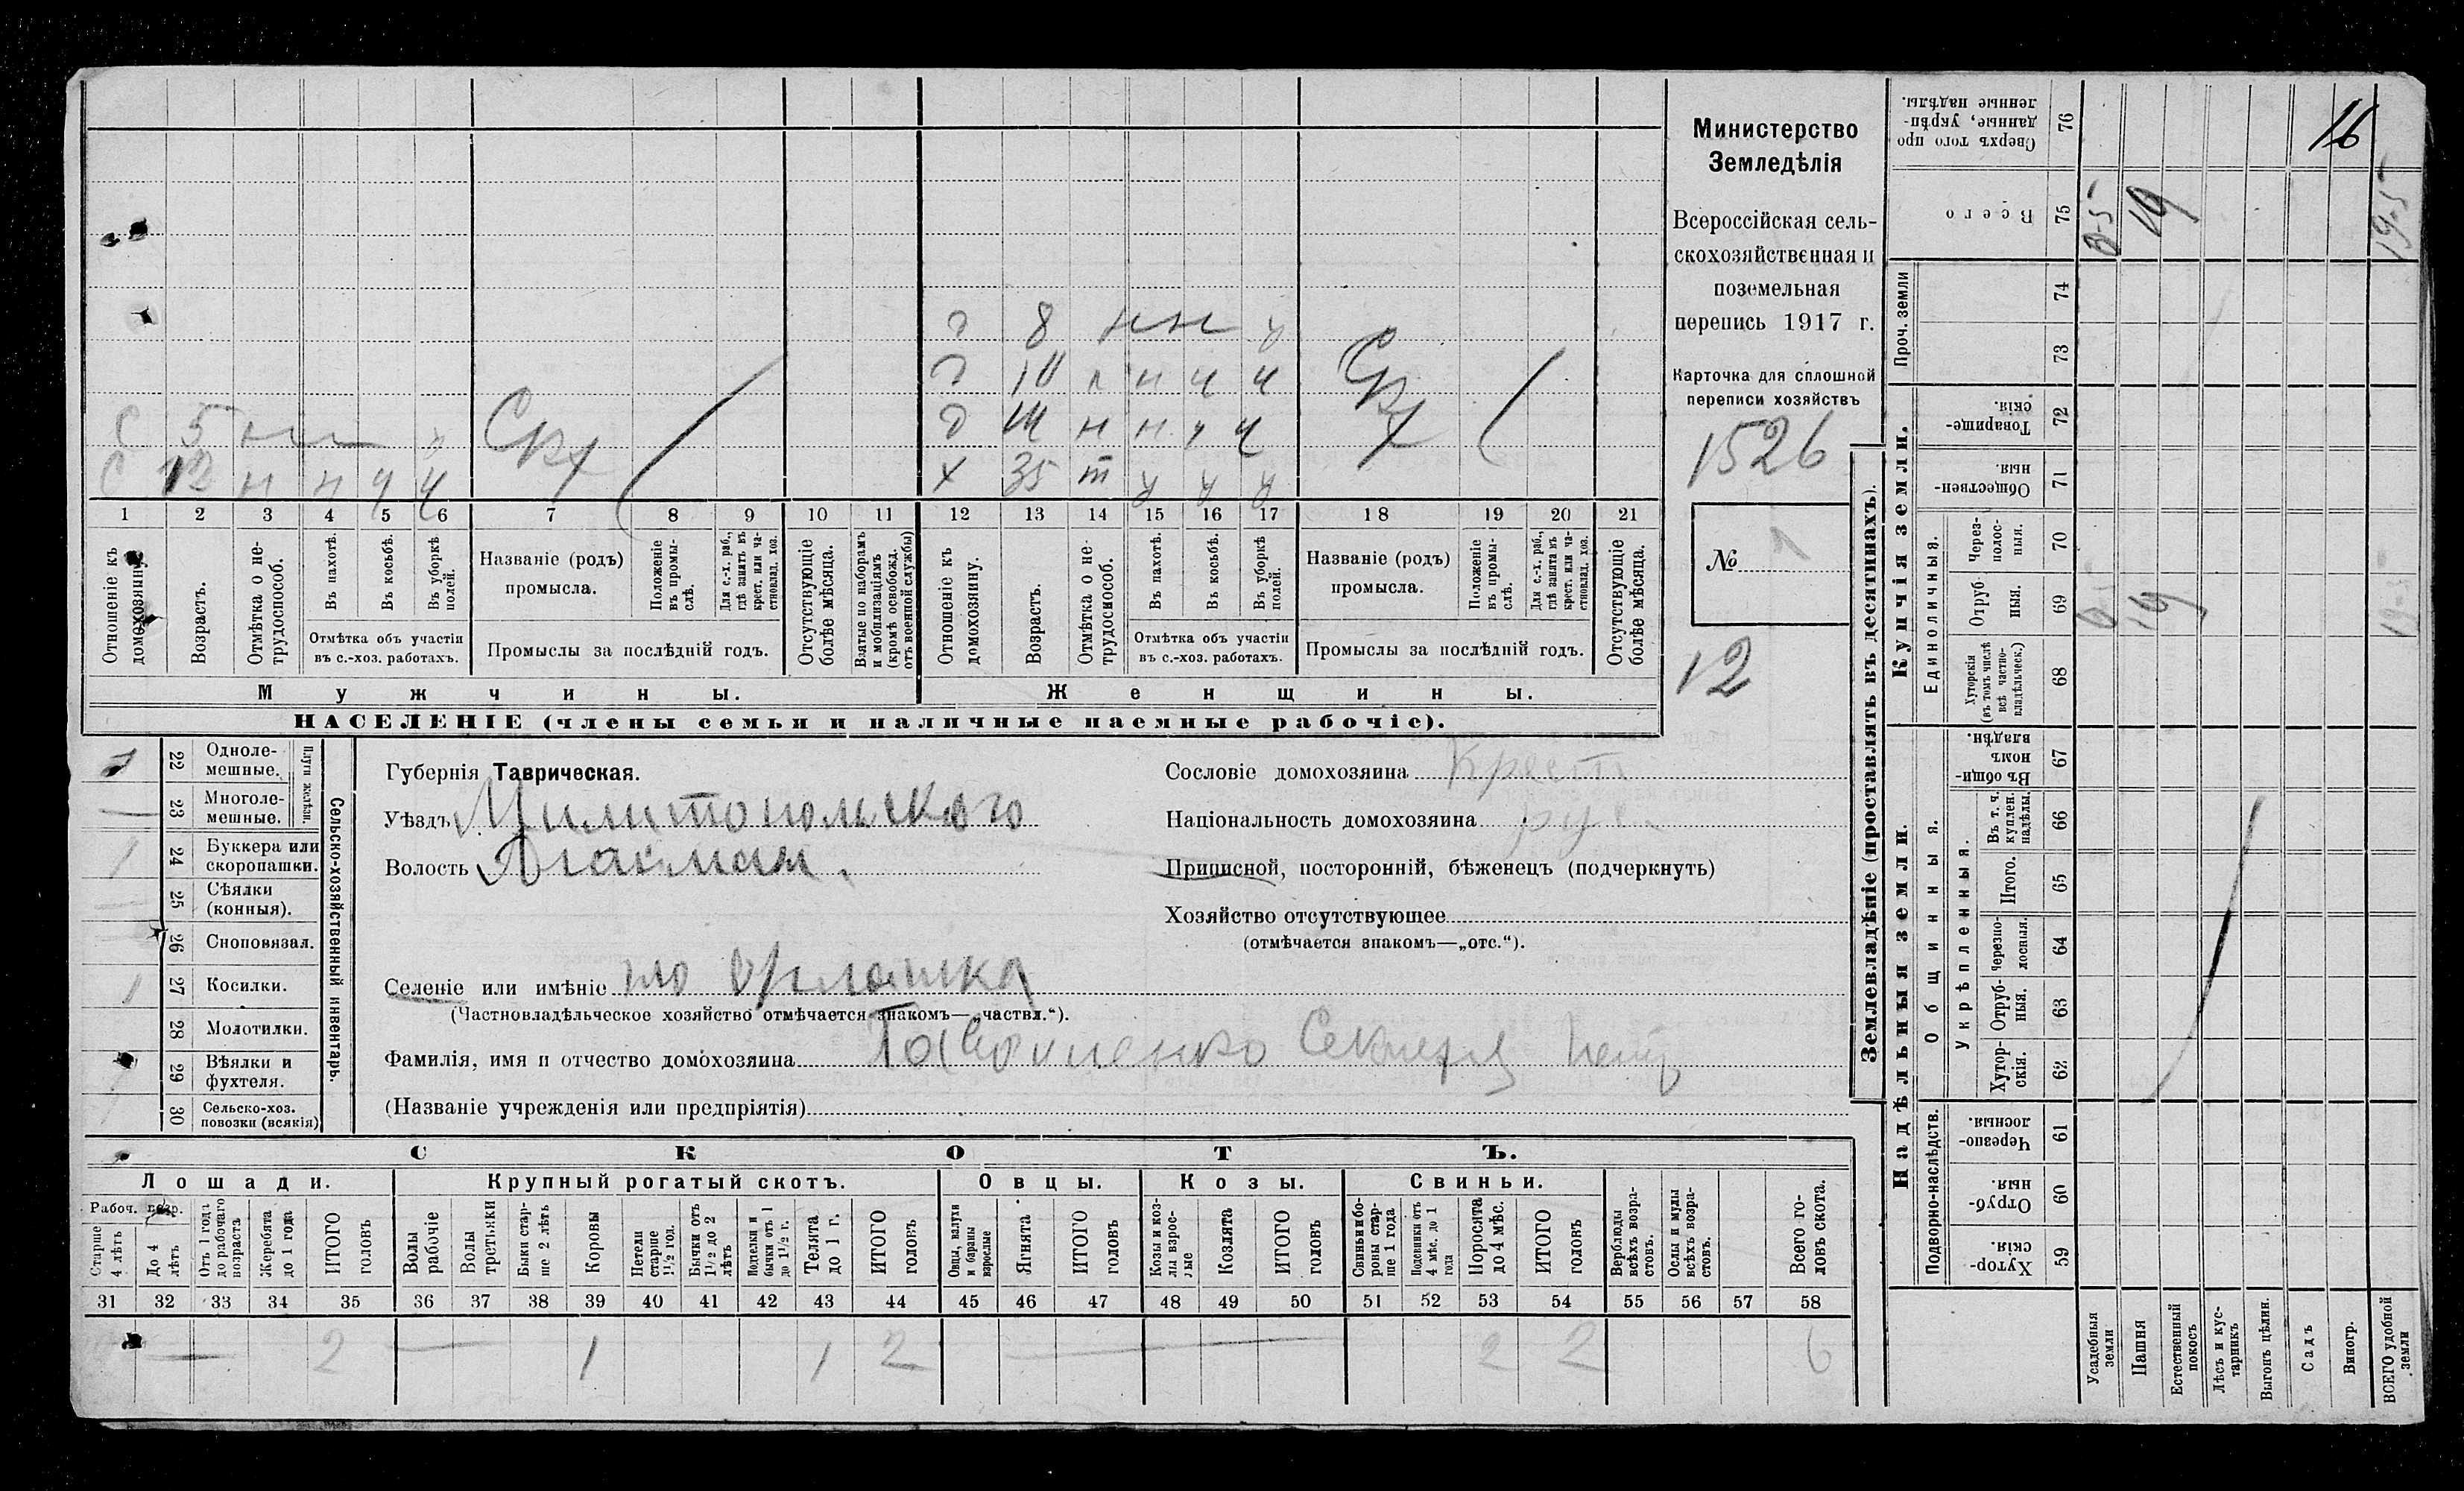 Министерство
Земледѣлія
Всероссійская сель-
скохозяйственная и
поземельная
перепись 1917 г.
Карточка для сплошной
переписи хозяйствъ
1526
№
12
д 8 н н
д 10 н н ч ч
д 14 н н ч ч
х 35 т ч ч ч
с 5 н
с 12 н н ч ч
1 2 3 4 5 6 7 8 9 10 11 12 13 14 15 16 17 18 19 20 21
Отношеніе къ домохозяину.
Возрастъ.
Отмѣтка о не-трудоспособ.
Въ пахотѣ.
Въ косьбѣ.
Въ уборкѣ полей.
Отмѣтка объ участіи
въ с.-хоз. работахъ.
Названіе (родъ)
промысла.
Положеніе въ промы-слѣ.
Для с.-х. раб., гдѣ занятъ въ крест. или ча-стновлад. хоз.
Промыслы за послѣдній годъ.
Отсутствующіе болѣе мѣсяца.
Взятые по наборамъ и мобилизаціямъ (кромѣ освобожд. отъ военной службы)
Отношеніе къ домохозяину.
Возрастъ.
Отмѣтка о не-трудоспособ.
Въ пахотѣ.
Въ косьбѣ.
Въ уборкѣ полей.
Отмѣтка объ участіи
въ с.-хоз. работахъ.
Названіе (родъ)
промысла.
Положеніе въ промы-слѣ.
Для с.-х. раб., гдѣ занята въ крест. или ча-стновлад. хоз.
Промыслы за послѣдній годъ.
Отсутствующіе болѣе мѣсяца.
Мужчины.
Женщины.
НАСЕЛЕНІЕ (члены семьи и наличные наемные рабочіе).
22 Одноле-мешные.
23 Многоле-мешные.
Плуги желѣзн.
1 24 Буккера или скоропашки.
25 Сѣялки (конныя).
26 Сноповязал.
1 27 Косилки.
28 Молотилки.
29 Вѣялки и фухтеля.
30 Сельско-хоз. повозки (всякія)
Сельско-хозяйственный инвентарь.
Губернія Таврическая.
Уѣздъ Милитопольскаго
Волость
Селеніе или имѣніе Орлянка
(Частновладѣльческое хозяйство отмѣчается знакомъ—„частвл.“).
Фамилія, имя и отчество домохозяина
(Названіе учрежденія или предпріятія)
Сословіе домохозяина Крест
Національность домохозяина рус
Приписной, посторонній, бѣженецъ (подчеркнуть)
Хозяйство отсутствующее
(отмѣчается знакомъ—„отс.“).
СКОТЪ.
Лошади.
Крупный рогатый скотъ.
Овцы.
Козы.
Свиньи.
Рабоч. возр.
Старше 4 лѣтъ
До 4 лѣтъ
Отъ 1 года до рабочаго возраста
Жеребята до 1 года
ИТОГО головъ
Волы рабочіе
Волы третьяки
Быки стар-ше 2 лѣтъ
Коровы
Нетели старше 1½ год.
Бычки отъ 1½ до 2 лѣтъ
Подтелки и бычки отъ 1 до 1½ г.
Телята до 1 г.
ИТОГО головъ
Овцы, валухи и бараны взрослые
Ягнята
ИТОГО головъ
Козы и коз-лы взрос-лые
Козлята
ИТОГО головъ
Свиньи и бо-ровы стар-ше 1 года
Подсвинки отъ 4 мѣс. до 1 года
Поросята до 4 мѣс.
ИТОГО головъ
Верблюды всѣхъ возра-стовъ.
Ослы и мулы всѣхъ возра-стовъ.
Всего го-ловъ скота.
31 32 33 34 35 36 37 38 39 40 41 42 43 44 45 46 47 48 49 50 51 52 53 54 55 56 57 58
2 1 1 2 2 2 6
Землевладѣніе (проставлять въ десятинахъ).
Надѣльныя земли.
Купчія земли.
Проч. земли
Подворно-наслѣдств.
Общинныя.
Укрѣпленныя.
Единоличныя.
Сверхъ того про-данные, укрѣп-ленные надѣлы. 76 16
Всего 75 19 19-5
74
73
Товарище-скія. 72
Обществен-ныя. 71
Через-полос-ныя. 70
Отруб-ныя. 69 19
Хуторскія (въ томъ числѣ всѣ частно-владѣльческ.) 68
Въ общин-номъ владѣн. 67
Въ т. ч. куплен. надѣлы. 66
Итого. 65
Черезпо-лосныя. 64
Отруб-ныя. 63
Хутор-скія. 62
Черезпо-лосныя. 61
Отруб-ныя. 60
Хутор-скія. 59
Усадебныя земли
Пашня
Естественный покосъ
Лѣсъ и кус-тарникъ
Выгонъ цѣлин.
Садъ
Виногр.
ВСЕГО удобной земли